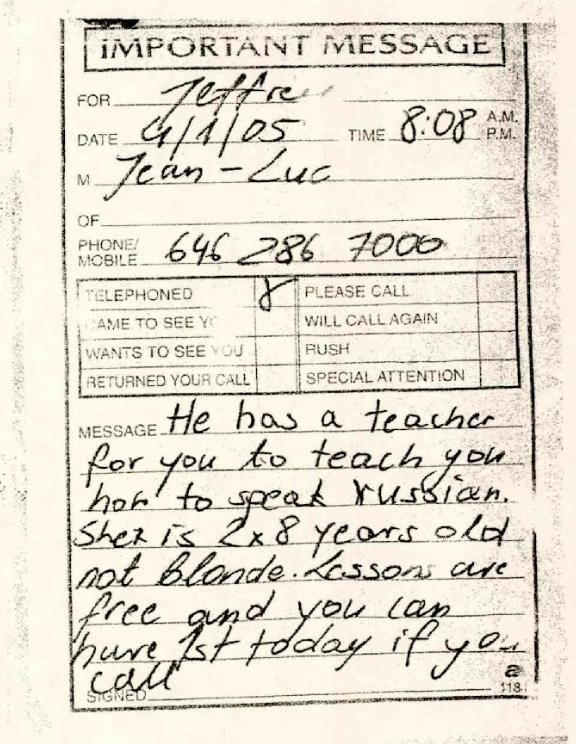 IMPORTANT MESSAGE
FOR Jeffre
DATE 4/1/05 TIME 8:08 A.M. P.M.
M Jean-Luc
OF
PHONE/ MOBILE 646 286 7000
TELEPHONED PLEASE CALL
CAME TO SEE YO WILL CALL AGAIN
WANTS TO SEE YOU RUSH
RETURNED YOUR CALL SPECIAL ATTENTION
MESSAGE He has a teacher
for you to teach you
how to speak russian.
She is 2x8 years old
not blonde. Lessons are
free and you can
have 1st today if you
call
SIGNED 118